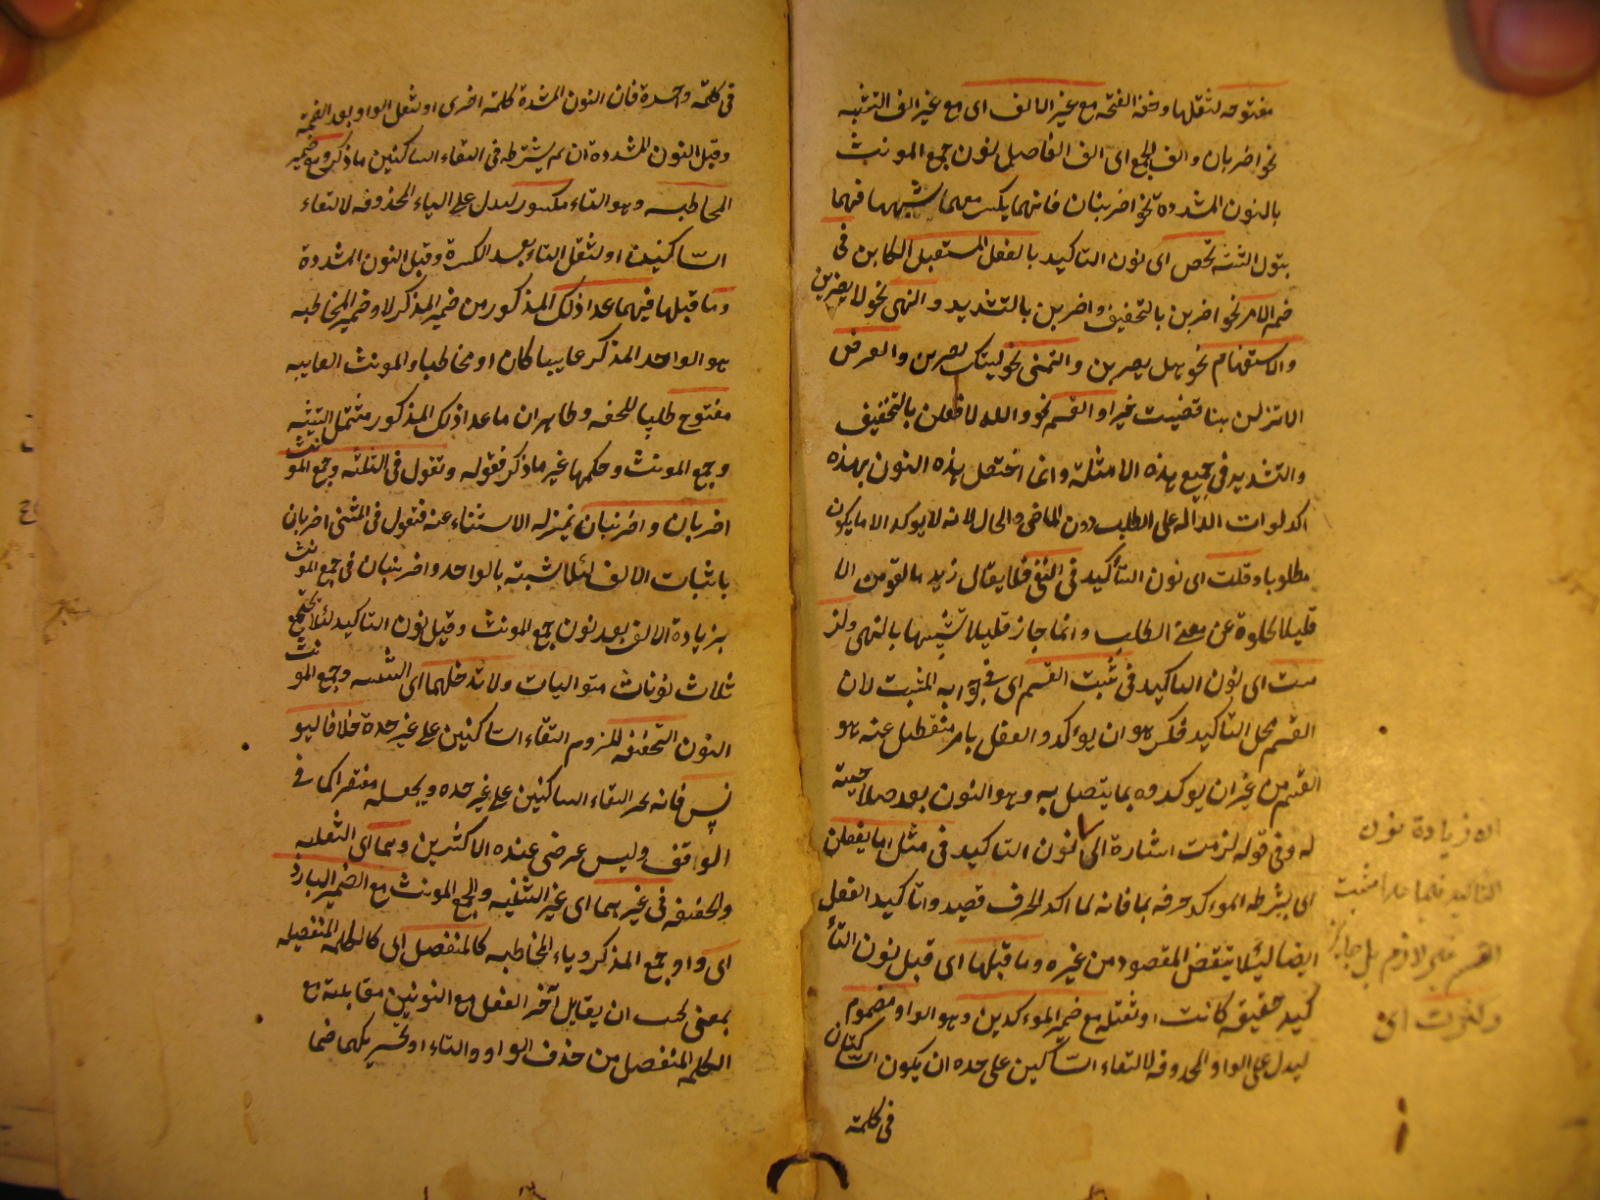 مفتوحه لثقلها وخفة الفتحه مع غير الالف اى مع غير الف التثنيه
نحو اضربان والف الجمع اى الف الفاصل لنون جمع المونث
بالنون المشددة نحو اضربنان فانهما يكسر معهما شبهها فيهما
بنون التثنيه تختص اى نون التاكيد بالفعل المستقبل الكاين فى
ضمه الامر نحو اضربن بالتخفيف واضربن بالتشديد والنهى نحو لا يضربن
والاستفهام نحو هل يضربن والتمنى نحو ليتك تضربن والعرض
الا تنزلن بنا فتصيب خيرا والقسم نحو والله لافعلن بالتخفيف
والتشديد فى جميع هذه الامثلة وانما اختص هذه النون بهذه
المذكورات الداله على الطلب دون الماضى والحال لانه لا يوكد الا ما يكون
مطلوبا وقلت اى نون التأكيد فى النفى فلا يقال زيد ما يقومن الا
قليلا لخلوه عن معنى الطلب وانما جاز قليلا تشبيها بالنهى ولز
مت اى نون التاكيد فى مثبت القسم اى فى جوابه المثبت لان
القسم محل التاكيد فكره ان يؤكد والفعل بامر منفصل عنه هو
القسم من غير ان يوكدوه بما يتصل به وهو النون بعد صلاحيته
له وفى قوله لزمت اشارة الى نون التاكيد فى مثل اما يفعلن
اى بشرطه الموكد حرفه بما فانه لما اكد الحرف قصدوا تاكيد الفعل
ايضا لئلا ينتقض المقصود من غيره وما قبلها اى قبل نون التأ
كيد خفيفه كانت او ثقيله مع ضمير المؤكدين وهو الواو مضموم
ليدل على الواو المحذوفه لالتقاء الساكنين على حده ان يكون الساكنان
فى كلمة
ان زيادة نون
التاكيد فيما عدا مثبت
القسم غير لازم بل جايز
ولزمت اى
فى كلمة واحدة فان النون المشددة كلمة اخرى او ثقل الواو بعد الضمة
وقبل النون المشددة ان لم يشترط فى التقاء الساكنين ما ذكر ومع ضمير
المخاطبه وهو التاء مكسور ليدل على الياء المحذوفه لالتقاء
الساكنين او لثقل التاء بعد الكسرة وقبل النون المشددة
وما قبلها فيما عدا ذلك المذكور من ضمير المذكر لا وضمير المخاطبه
هو الواحد المذكر غايبا كان او مخاطبا والمونث الغايبه
مفتوح طلبا للخفه وظاهر ان ما عدا ذلك المذكور مشتمل التثنيه
وجمع المونث وحكمها غير ما ذكر فقوله وتقول فى التثنيه وجمع المونث
اضربان واضربنان بمنزله الاستثناء عنه فتقول فى المثنى اضربان
باثبات الالف لئلا يشتبه بالواحد واضربنان فى جمع المونث
بزيادة الالف بعد نون جمع المونث وقبل نون التاكيد لئلا تجتمع
ثلاث نونات متواليات ولا تدخلهما اى التثنيه وجمع المونث
النون الخفيفه للزوم التقاء الساكنين على غير حدة خلافا ليو
نس فانه يجوز التقاء الساكنين على غير حده ويجعله مغتفرا كما فى
الوقف وليس بمرضى عند الاكثرين وهما اى الثقيله
والخفيفه فى غيرهما اى غير التثنيه والجمع المونث مع الضمير البارز
اى واو جمع المذكر وياء المخاطبه كالمنفصل اى كالكلمه المنفصله
بمعنى يجب ان يقابل آخر الفعل مع النونين مقابلته مع
الكلمه المنفصل من حذف الواو والتاء او تحريكهما ضما